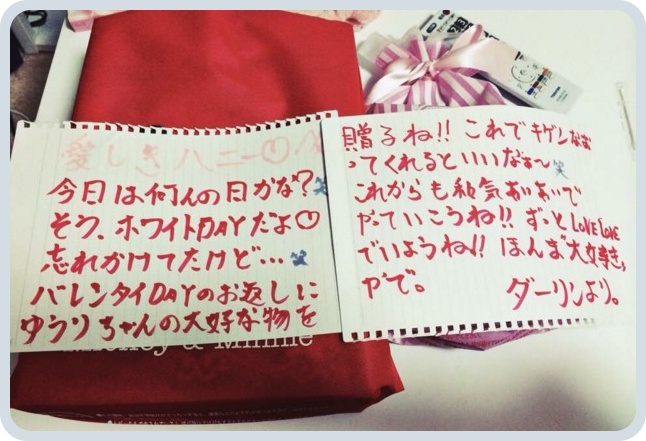 愛しきハニー♡
今日は何んの日かな?笑
そう、ホワイトDAYだよ♡
忘れかけてたけど…笑
バレンタイDAYのお返しに
ゆうりちゃんの大好な物を
贈るね!! これでキゲンなお
ってくれるといいなぁ〜笑
これからも和気あいあいで
やっていこうね!! ずっとLOVELOVE
でいようね!! ほんま大好き
やで。 ダーリンより。
& Minnie